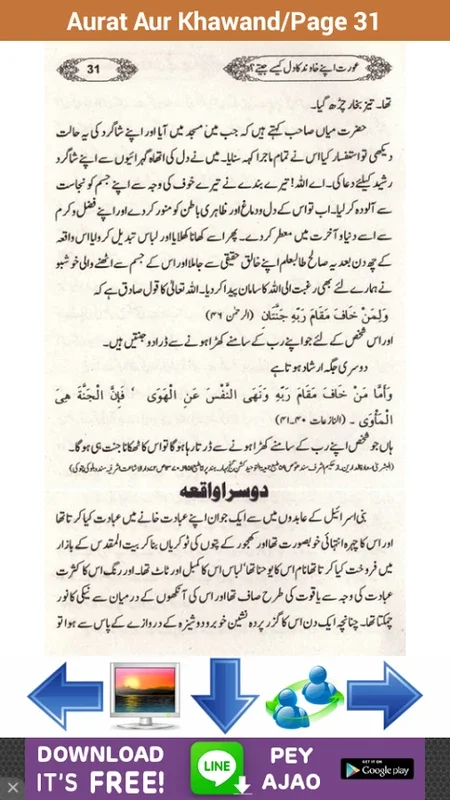 Aurat Aur Khawand/Page 31
31
عورت اپنے خاوند کا دل کیسے جیتے؟
تھا۔ تیز بخار چڑھ گیا۔
حضرت میاں صاحب کہتے ہیں کہ جب میں مسجد میں آیا اور اپنے شاگرد کی یہ حالت
دیکھی تو استفسار کیا اس نے تمام ماجرا کہہ سنایا۔ میں نے دل کی اتھاہ گہرائیوں سے اپنے شاگرد
رشید کیلئے دعا کی۔ اے اللہ! تیرے بندے نے تیرے خوف کی وجہ سے اپنے جسم کو نجاست
سے آلودہ کر لیا۔ اب تو اس کے دل و دماغ اور ظاہری باطن کو منور کر دے اور اپنے فضل و کرم
سے اسے دنیا و آخرت میں معطر کر دے۔ پھر اسے کھانا کھلایا اور لباس تبدیل کروایا اس واقعہ
کے چھ دن بعد یہ صالح طالبعلم اپنے خالق حقیقی سے جا ملا اور اس کے جسم سے اٹھنے والی خوشبو
نے ہمارے لئے بھی رغبت الی اللہ کا سامان پیدا کر دیا۔ اللہ تعالیٰ کا قول صادق ہے کہ
وَلِمَنْ خَافَ مَقَامَ رَبِّهِ جَنَّتَانِ (الرحمٰن ۴۶)
اور اس شخص کے لئے جو اپنے رب کے سامنے کھڑا ہونے سے ڈرا دو جنتیں ہیں۔
دوسری جگہ ارشاد ہوتا ہے
وَأَمَّا مَنْ خَافَ مَقَامَ رَبِّهِ وَنَهَى النَّفْسَ عَنِ الْهَوَى ، فَإِنَّ الْجَنَّةَ هِيَ
الْمَأْوَى ۔ (النازعات ۴۰۔۴۱)
ہاں جو شخص اپنے رب کے سامنے کھڑا ہونے سے ڈرتا رہا ہو گا تو اس کا ٹھکانا جنت ہی ہو گا۔
دوسرا واقعہ
بنی اسرائیل کے عابدوں میں سے ایک جوان اپنے عبادت خانے میں عبادت کیا کرتا تھا
اور اس کا چہرہ انتہائی خوبصورت تھا اور کھجور کے پتوں کی ٹوکریاں بنا کر بیت المقدس کے بازار
میں فروخت کیا کرتا تھا نام اس کا یوحنا تھا لباس اس کا کمبل اور ٹاٹ تھا۔ اور رنگ اس کا کثرت
عبادت کی وجہ سے یاقوت کی طرح صاف تھا اور اس کی آنکھوں کے درمیان سے نیکی کا نور
چمکتا تھا۔ چنانچہ ایک دن اس کا گزر پردہ نشین خوبرو دوشیزہ کے دروازے کے پاس سے ہوا تو
DOWNLOAD
IT'S FREE!
LINE
PEY
AJAO
GET IT ON
Google play